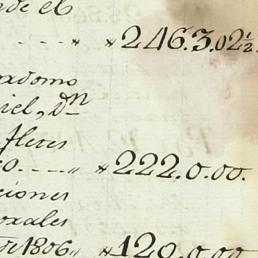 de el
.... „ „ 246.3.02½
axdomo
iel, Dn
fletes
o.... „ „ 222.0.00.
ciones
oxales
de 1806„ „ 120.0.00